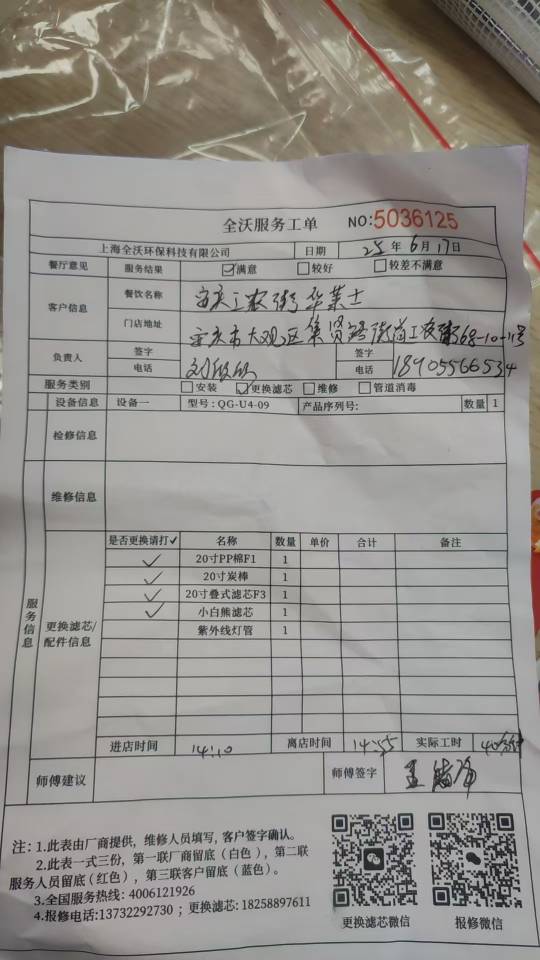 全沃服务工单 NO:5036125
上海全沃环保科技有限公司 日期 25年6月17日
餐厅意见 服务结果 ☑满意 □较好 □较差不满意
客户信息 餐饮名称 安庆工农街华莱士
门店地址 安庆市大观区集贤路街道工农街68-10-11号
负责人 签字 电话 签字 电话 18905566534
服务类别 □安装 ☑更换滤芯 □维修 □管道消毒
设备信息 设备一 型号:QG-U4-09 产品序列号: 数量 1
检修信息
服务信息
维修信息
更换滤芯/配件信息
是否更换请打✓ 名称 数量 单价 合计 备注
✓ 20寸PP棉F1 1
✓ 20寸炭棒 1
✓ 20寸叠式滤芯F3 1
✓ 小白熊滤芯 1
紫外线灯管 1
进店时间 14:10 离店时间 14:55 实际工时 40分钟
师傅建议 师傅签字
注：1.此表由厂商提供，维修人员填写，客户签字确认。
2.此表一式三份，第一联厂商留底（白色），第二联
服务人员留底(红色)，第三联客户留底（蓝色）。
3.全国服务热线: 4006121926
4.报修电话:13732292730；更换滤芯: 18258897611
更换滤芯微信 报修微信